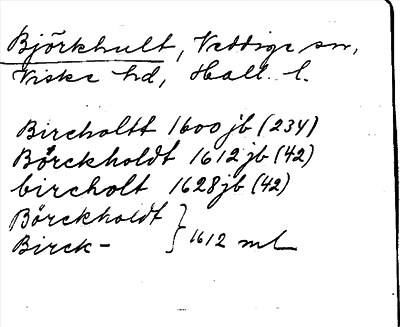 Björkhult, Veddige sn,
Viske hd, Hall. l.
Bircholtt 1600 jb (234)
Börckholdt 1612 jb (42)
bircholt 1628 jb (42)
Börckholdt } 1612 ml
Birck-